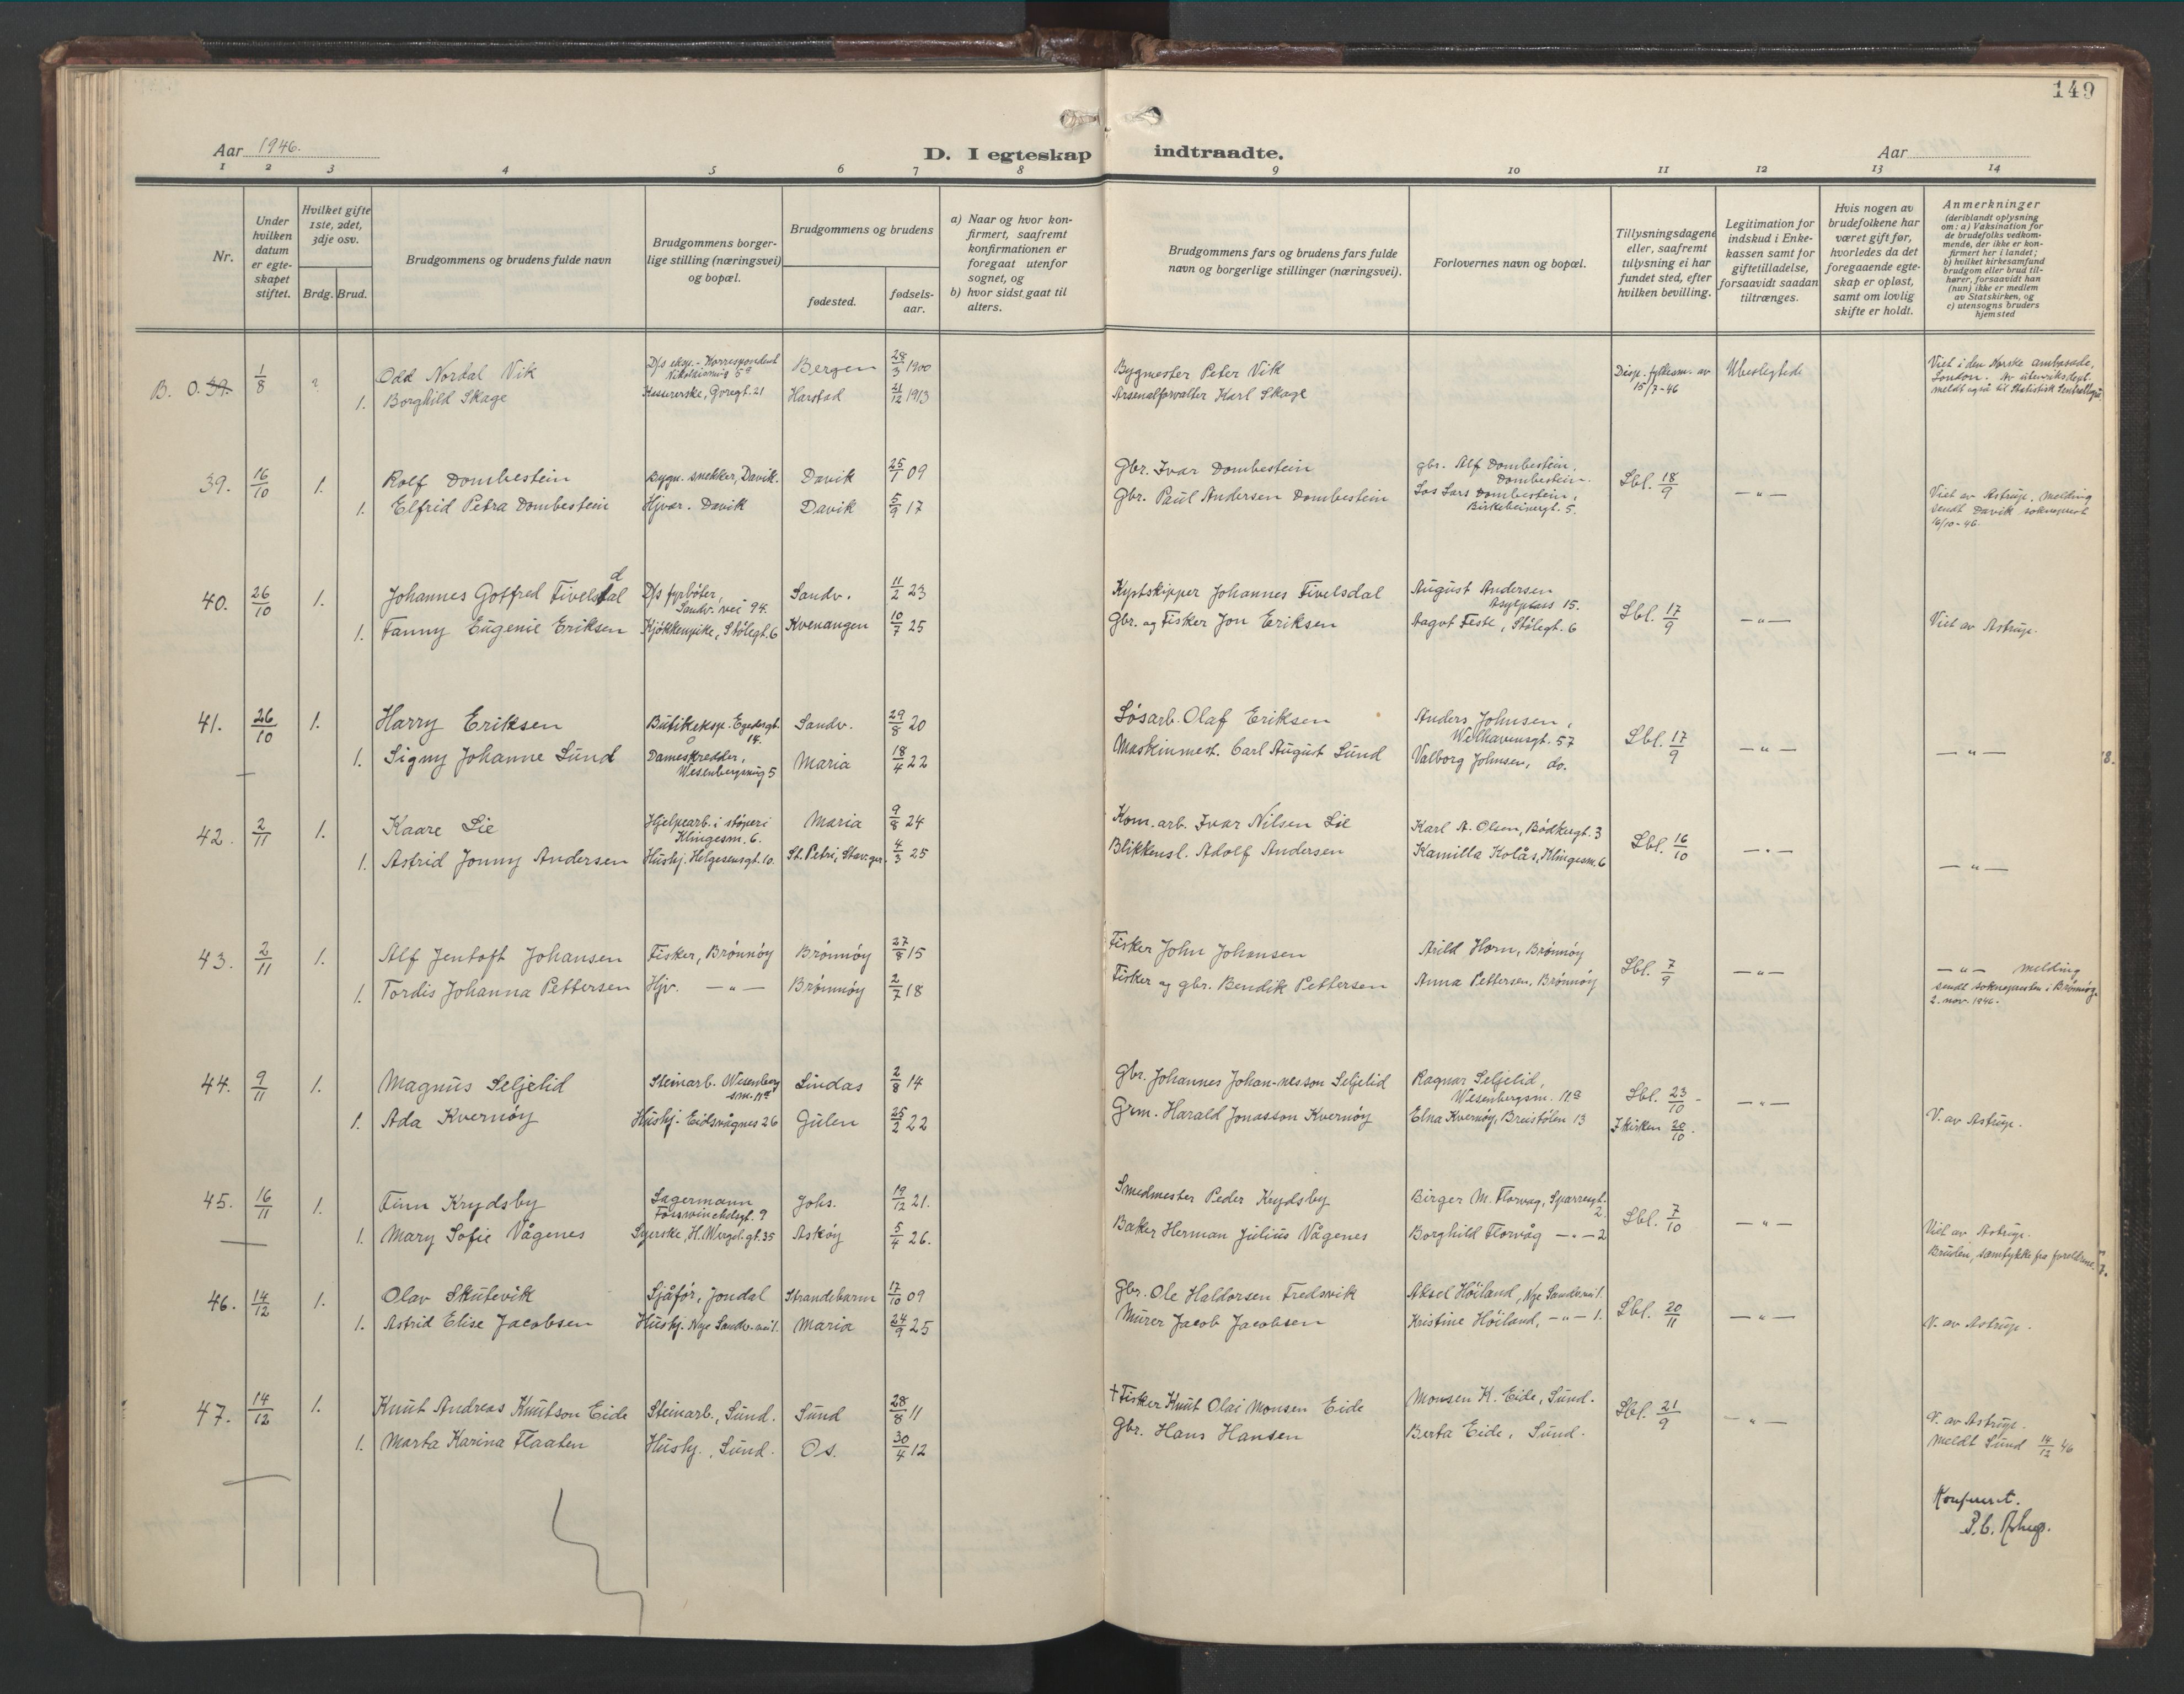 149
Aar 1946.
D. I egteskap indtraadte.
Aar
1 2 3 4 5 6 7 8 9 10 11 12 13 14
Nr.
Under hvilken datum er egteskapet stiftet.
Hvilket gifte 1ste, 2det, 3dje osv.
Brdg. Brud.
Brudgommens og brudens fulde navn
Brudgommens borgerlige stilling (næringsvei) og bopæl.
Brudgommens og brudens
fødested.
fødselsaar.
a) Naar og hvor konfirmert, saafremt konfirmationen er foregaat utenfor sognet, og
b) hvor sidst gaat til alters.
Brudgommens fars og brudens fars fulde navn og borgerlige stillinger (næringsvei).
Forlovernes navn og bopæl.
Tillysningsdagene eller, saafremt tillysning ei har fundet sted, efter hvilken bevilling.
Legitimation for indskud i Enkekassen samt for giftetilladelse, forsaavidt saadan tiltrænges.
Hvis nogen av brudefolkene har været gift før, hvorledes da det foregaaende egteskap er opløst, samt om lovlig skifte er holdt.
Anmerkninger
(deriblandt oplysning om: a) Vaksination for de brudefolks vedkommende, der ikke er konfirmert her i landet; b) hvilket kirkesamfund brudgom eller brud tilhører, forsaavidt han (hun) ikke er medlem av Statskirken, og c) utensogns bruders hjemsted
B. O. 39. 1/8 Odd Nordal Vik D/s eksp.-Korrespondent Bergen 28/3 1900 Bygmester Peter Vik Disp. fylkesm. av 15/7-46 Ubeslegtede Viet i den Norske ambasade, London. Av utenriksdept. meldt også til Statistisk Sentralbyrå
1. Borghild Skage Kasererske, Goregt. 21 Harstad 21/12 1913 Arsenalforvalter Karl Skage
39. 16/10 1. Rolf Dombestein Bygn. snekker, Davik. Davik 25/1 09 Gbr. Ivar Dombestein gbr. Alf Dombestein, Dombestein. Lbl. 18/9 — " —
1. Elfrid Petra Dombestein Hjvær. Davik Davik 5/9 17 Gbr. Paul Andersen Dombestein Los Lars Dombestein, Birkebeinergt. 5. Viet av Astrup. Melding sendt Davik sokneprest 16/10-46.
40. 26/10 1. Johannes Gotfred Tivelsdal D/s fyrbøter, Sandv. vei 94. Sandv. 11/2 23 Kyptskipper Johannes Tivelsdal August Andersen Asylplass 15. Lbl. 17/9 — " —
1. Fanny Eugenie Eriksen Kjøkkenpike, Stølegt. 6 Kvenangen 10/7 25 Gbr. og Fisker Jon Eriksen Aagot Feste, Stølegt. 6 Viet av Astrup.
41. 26/10 1. Harry Eriksen Butikeksp. Egedesgt. 14. Sandv. 29/8 20 Løsarb. Olaf Eriksen Anders Johnsen, Welhavensgt. 57 Lbl. 17/9 — " —
1. Signy Johanne Lund Dameskredder, Wesenbergsmug 5 Maria 18/4 22 Maskinmest. Carl August Lund Valborg Johnsen, do. — " —
42. 2/11 1. Kaare Lie Hjelpearb. i støperi Klingesm. 6. Maria 9/8 24 Kom. arb. Ivar Nilsen Lie Karl A. Olsen, Bødkergt. 3 Lbl. 16/10 — " —
1. Astrid Jonny Andersen Hushj. Helgesensgt. 10. St. Petri, Stav.ger. 4/3 25 Blikkensl. Adolf Andersen Kamilla Kolås, Klingesm. 6 — " —
43. 2/11 1. Alf Jentoft Johansen Fisker, Brønnøy Brønnøy 27/8 15 Fisker John Johansen Arild Horn, Brønnøy Lbl. 7/9 — " —
1. Tordis Johanna Pettersen Hjv. — " — Brønnøy 2/7 18 Fisker og gbr. Bendik Pettersen Anna Pettersen, Brønnøy — " — Melding sendt soknepresten i Brønnøy. 2. nov. 1946.
44. 9/11 1. Magnus Seljelid Steinarb. Wesenberg sm. 11a Lindås 2/8 14 Gbr. Johannes Johan-nesson Seljelid Ragnar Seljelid, Wesenbergsm. 11a Lbl. 23/10 - — " —
1. Ada Kvernøy Hushj. Eidsvågnes 26 Gulen 25/2 22 Grm. Harald Jonasson Kvernøy Elna Kvernøy, Breistølen 13 I kirken 20/10. V. av Astrup.
45. 16/11 1. Finn Krydsby Lagermann Forswinckelsgt. 9 Johs. 19/12 21. Smedmester Peder Krydsby Birger M. Florvag, Sparresgt. 2. Lbl. 7/10 — " —
1. Mary Sofie Vågenes Syerske, H. Wergel. gt. 35 Askøy 5/4 26. Baker Herman Julius Vågenes Borghild Florvåg — " — 2 Viet av Astrup. Bruden, samtykke fra foreldrene.
46. 14/12 1. Olav Skutevik Sjåfør, Jondal Strandebarm 17/10 09 Gbr. Ole Haldorsen Fredsvik Aksel Høiland, Nye Sandsvei 1. Lbl. 20/11 — " —
1. Astrid Elise Jacobsen Hushj. Nye Sandv. vei 1. Maria 24/9 25 Murer Jacob Jacobsen Kristine Høiland, — " — 1. V. av Astrup.
47. 14/12 1. Knut Andreas Knutson Eide Steinarb., Sund. Sund 28/8 11 † Fisker Knut Olai Monsen Eide Monsen K. Eide, Sund. Lbl. 21/9 — " —
1. Marta Karina Flaaten Hushj., Sund. Os. 30/4 12 Gbr. Hans Hansen Berta Eide, Sund. V. av Astrup. Meldt Sund 14/12 46
Konferert.